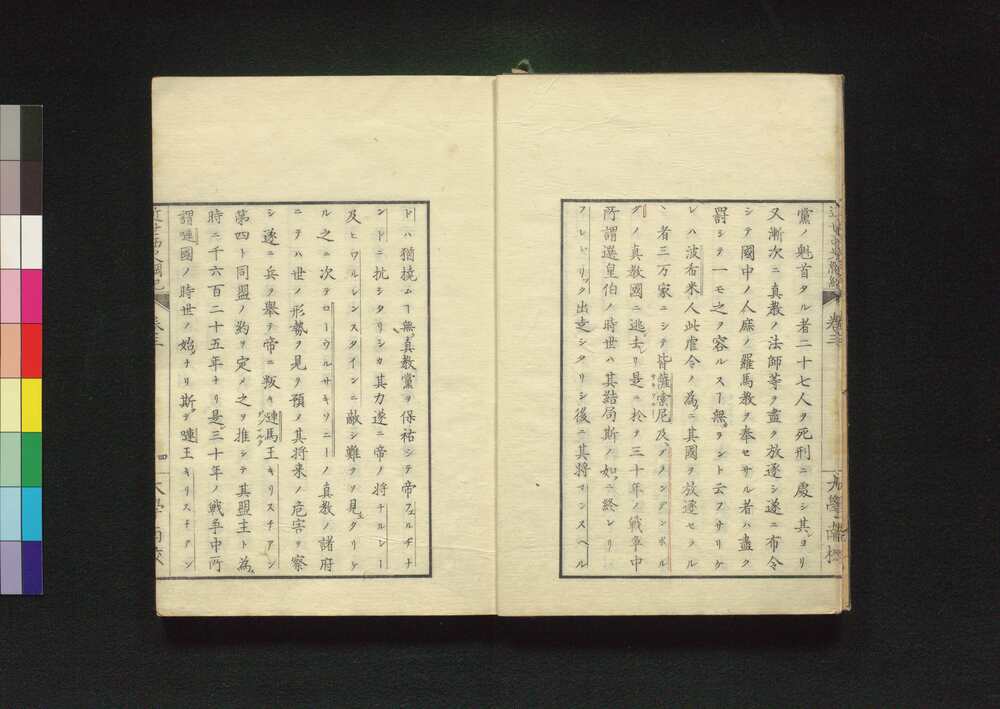 黨ノ魁首タル者二十七人ヲ死刑ニ處シ其ヨリ
又漸次ニ真教ノ法師等ヲ盡ク放逐シ遂ニ布令
シテ國中ノ人庶ノ羅馬教ヲ奉セサル者ハ盡ク
罸シテ一モ之ヲ容ルスヿ無ラント云フサリケ
レハ波希米人此虐令ノ為ニ其國ヲ放逐セラル
ヽ者三万家ニシテ皆薩索尼及
ノ真教國ニ逃去リ是ニ於テ三十年ノ戦争中
所謂選皇伯ノ時世ハ其結局斯ノ如ニ終レリ
フレドリック出走シタリシ後ニ其将マンスヘル
ドハ猶撓ムヿ無真教黨ヲ保祐シテ帝フェルヂナ
ンドニ抗シタリシカ其力遂ニ帝ノ将チルレー
及ヒワルレンスタインニ敵シ難クソ見ヱタリケ
ル之ニ次テローウルサキソニーノ真教ノ諸府
ニテハ世ノ形勢ヲ見テ預ノ其将来ノ危害ヲ察
シ遂ニ兵ヲ舉テ帝ニ叛キ嗹馬王キリスチアン
第四ト同盟ノ約ヲ定メ之ヲ推シテ其盟主ト為
時ニ千六百二十五年ナリ是三十年ノ戦争中所
謂嗹國ノ時世ノ始ナリ斯テ嗹王キリスチアン
卷三
四